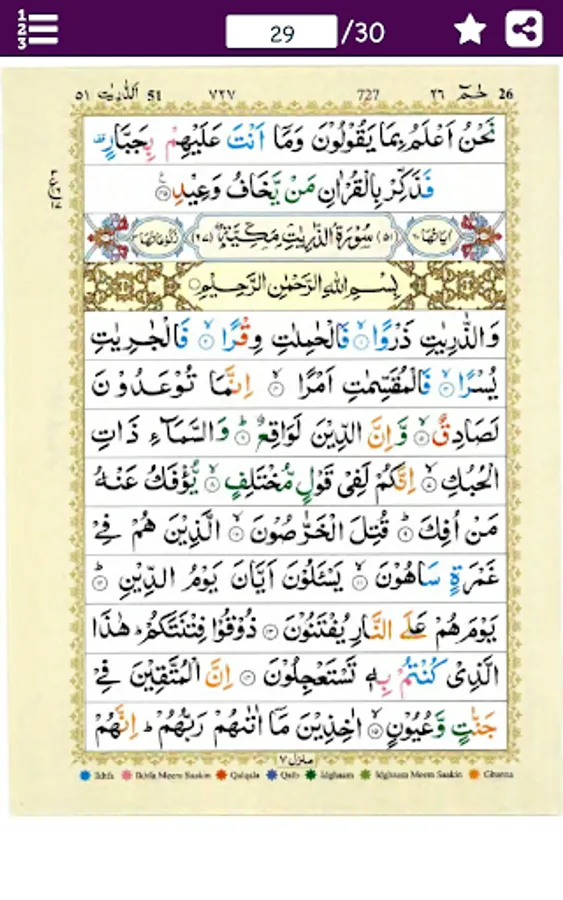 1 2 3
29 /30
51 اَلذّٰرِيٰت ٥١ ٧٢٧ 727 حٰمٓ ٢٦ 26
نَحْنُ اَعْلَمُ بِمَا يَقُوْلُوْنَ وَمَآ اَنْتَ عَلَيْهِمْ بِجَبَّارٍ
فَذَكِّرْ بِالْقُرْاٰنِ مَنْ يَّخَافُ وَعِيْدِ ۝٤٥
اٰيَاتُهَا ٦٠ (٥١) سُوْرَةُ الذّٰرِيٰتِ مَكِّيَّةٌ (٦٧) رُكُوْعَاتُهَا ٣
بِسْمِ اللهِ الرَّحْمٰنِ الرَّحِيْمِ
وَالذّٰرِيٰتِ ذَرْوًا ۝١ فَالْحٰمِلٰتِ وِقْرًا ۝٢ فَالْجٰرِيٰتِ
يُسْرًا ۝٣ فَالْمُقَسِّمٰتِ اَمْرًا ۝٤ اِنَّمَا تُوْعَدُوْنَ
لَصَادِقٌ ۝٥ وَّاِنَّ الدِّيْنَ لَوَاقِعٌ ۝٦ وَالسَّمَآءِ ذَاتِ
الْحُبُكِ ۝٧ اِنَّكُمْ لَفِيْ قَوْلٍ مُّخْتَلِفٍ ۝٨ يُّؤْفَكُ عَنْهُ
مَنْ اُفِكَ ۝٩ قُتِلَ الْخَرّٰصُوْنَ ۝١٠ الَّذِيْنَ هُمْ فِيْ
غَمْرَةٍ سَاهُوْنَ ۝١١ يَسْـَٔلُوْنَ اَيَّانَ يَوْمُ الدِّيْنِ ۝١٢
يَوْمَ هُمْ عَلَى النَّارِ يُفْتَنُوْنَ ۝١٣ ذُوْقُوْا فِتْنَتَكُمْ هٰذَا
الَّذِيْ كُنْتُمْ بِهٖ تَسْتَعْجِلُوْنَ ۝١٤ اِنَّ الْمُتَّقِيْنَ فِيْ
جَنّٰتٍ وَّعُيُوْنٍ ۝١٥ اٰخِذِيْنَ مَآ اٰتٰىهُمْ رَبُّهُمْ ط اِنَّهُمْ
منزل ٧
Ikhfa Ikhfa Meem Saakin Qalqala Qalb Idghaam Idghaam Meem Saakin Ghunna